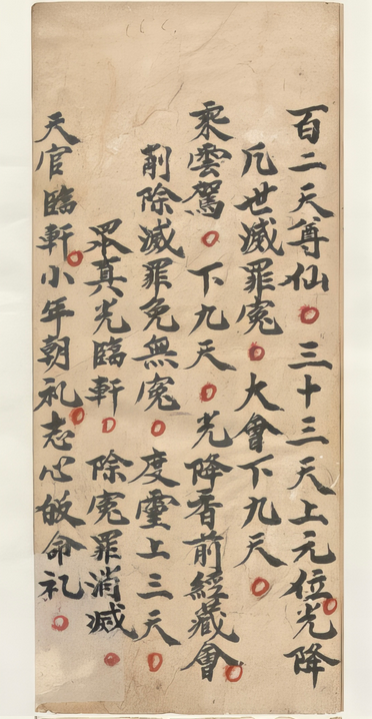 百二天尊仙○三十三天上元位○光降
凡世滅罪冤○大會下九天○
乘雲駕○下九天○光降香前經藏會○
削除滅罪免無冤○度靈上三天○
眾真光臨軒○除冤罪消滅○
天官臨軒○小年朝礼○志心皈命礼○